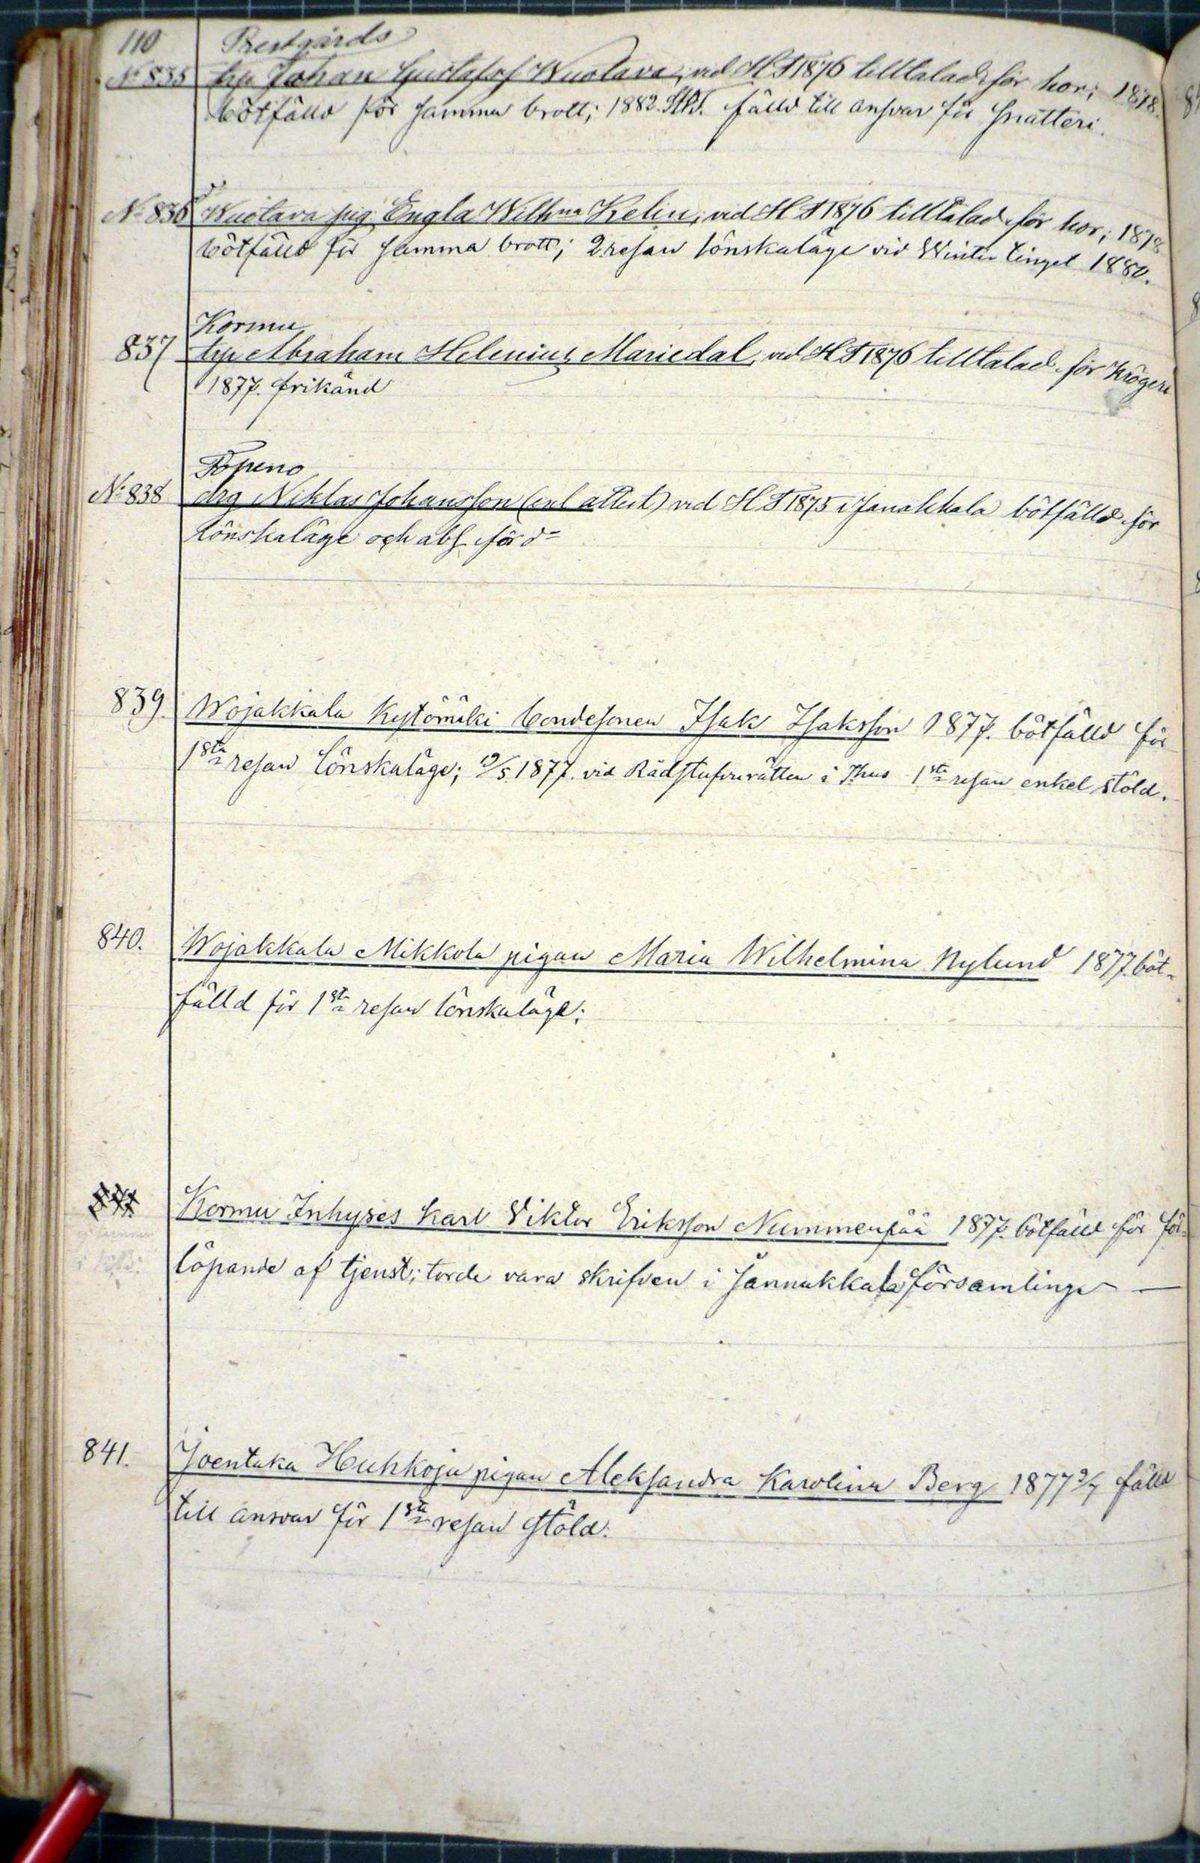 110
Prestgårds
No 835 trp Johan Gustafsf Wuolava, vid HT 1876 tilltalad för hor; 1878.
bötfälld för samma brott; 1882 fälld till ansvar för snatteri.
No 836 Wuolava pig. Engla Wilhna Kelin, vid HT 1876 tilltalad för hor; 1878
bötfälld för samma brott; 2 resan lönskaläge vid Winter tinget 1880.
Kormu
837 trp Abraham Helenius Mariedal, vid HT 1876 tilltalad för krögeri
1877. frikänd
Töpeno
No 838 drg Niklas Johansson (enl attest) vid HT 1875 i Janakkala bötfälld för
lönskaläge och abs. förd=
839. Wojakkala Kystömäki bondesonen Isak Isaksson 1877. bötfälld för
1sta resan lönskaläge; 1877. vid Rådstufvurätten i Thus 1sta resan enkel stöld.
840. Wojakkala Mikkola pigan Maria Wilhelmina Nylund 1877 böt-
fälld för 1sta resan lönskaläge;
841. Kormu Inhyses Karl Viktor Eriksson Nummenpää 1877. bötfälld för för-
löpande af tjenst; torde vara skrifven i Jannakkala församling —
841. Joentaka Huhkoja pigan Aleksandra Karolina Berg 1877 9/7 fälld
till ansvar för 1sta resan stöld.